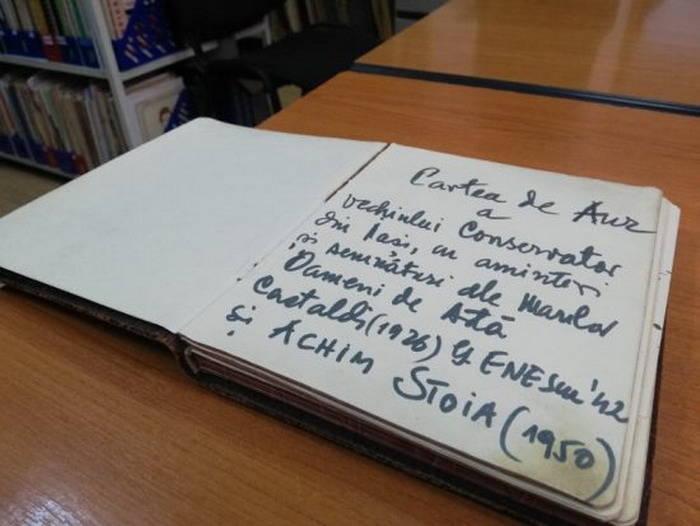 Cartea de Aur
a
vechiului Conservator
din Iasi, cu amintiri
și semnături ale Marilor
Oameni de Artă
Castaldi (1926) G ENEScu '42
și ACHIM STOIA (1950)